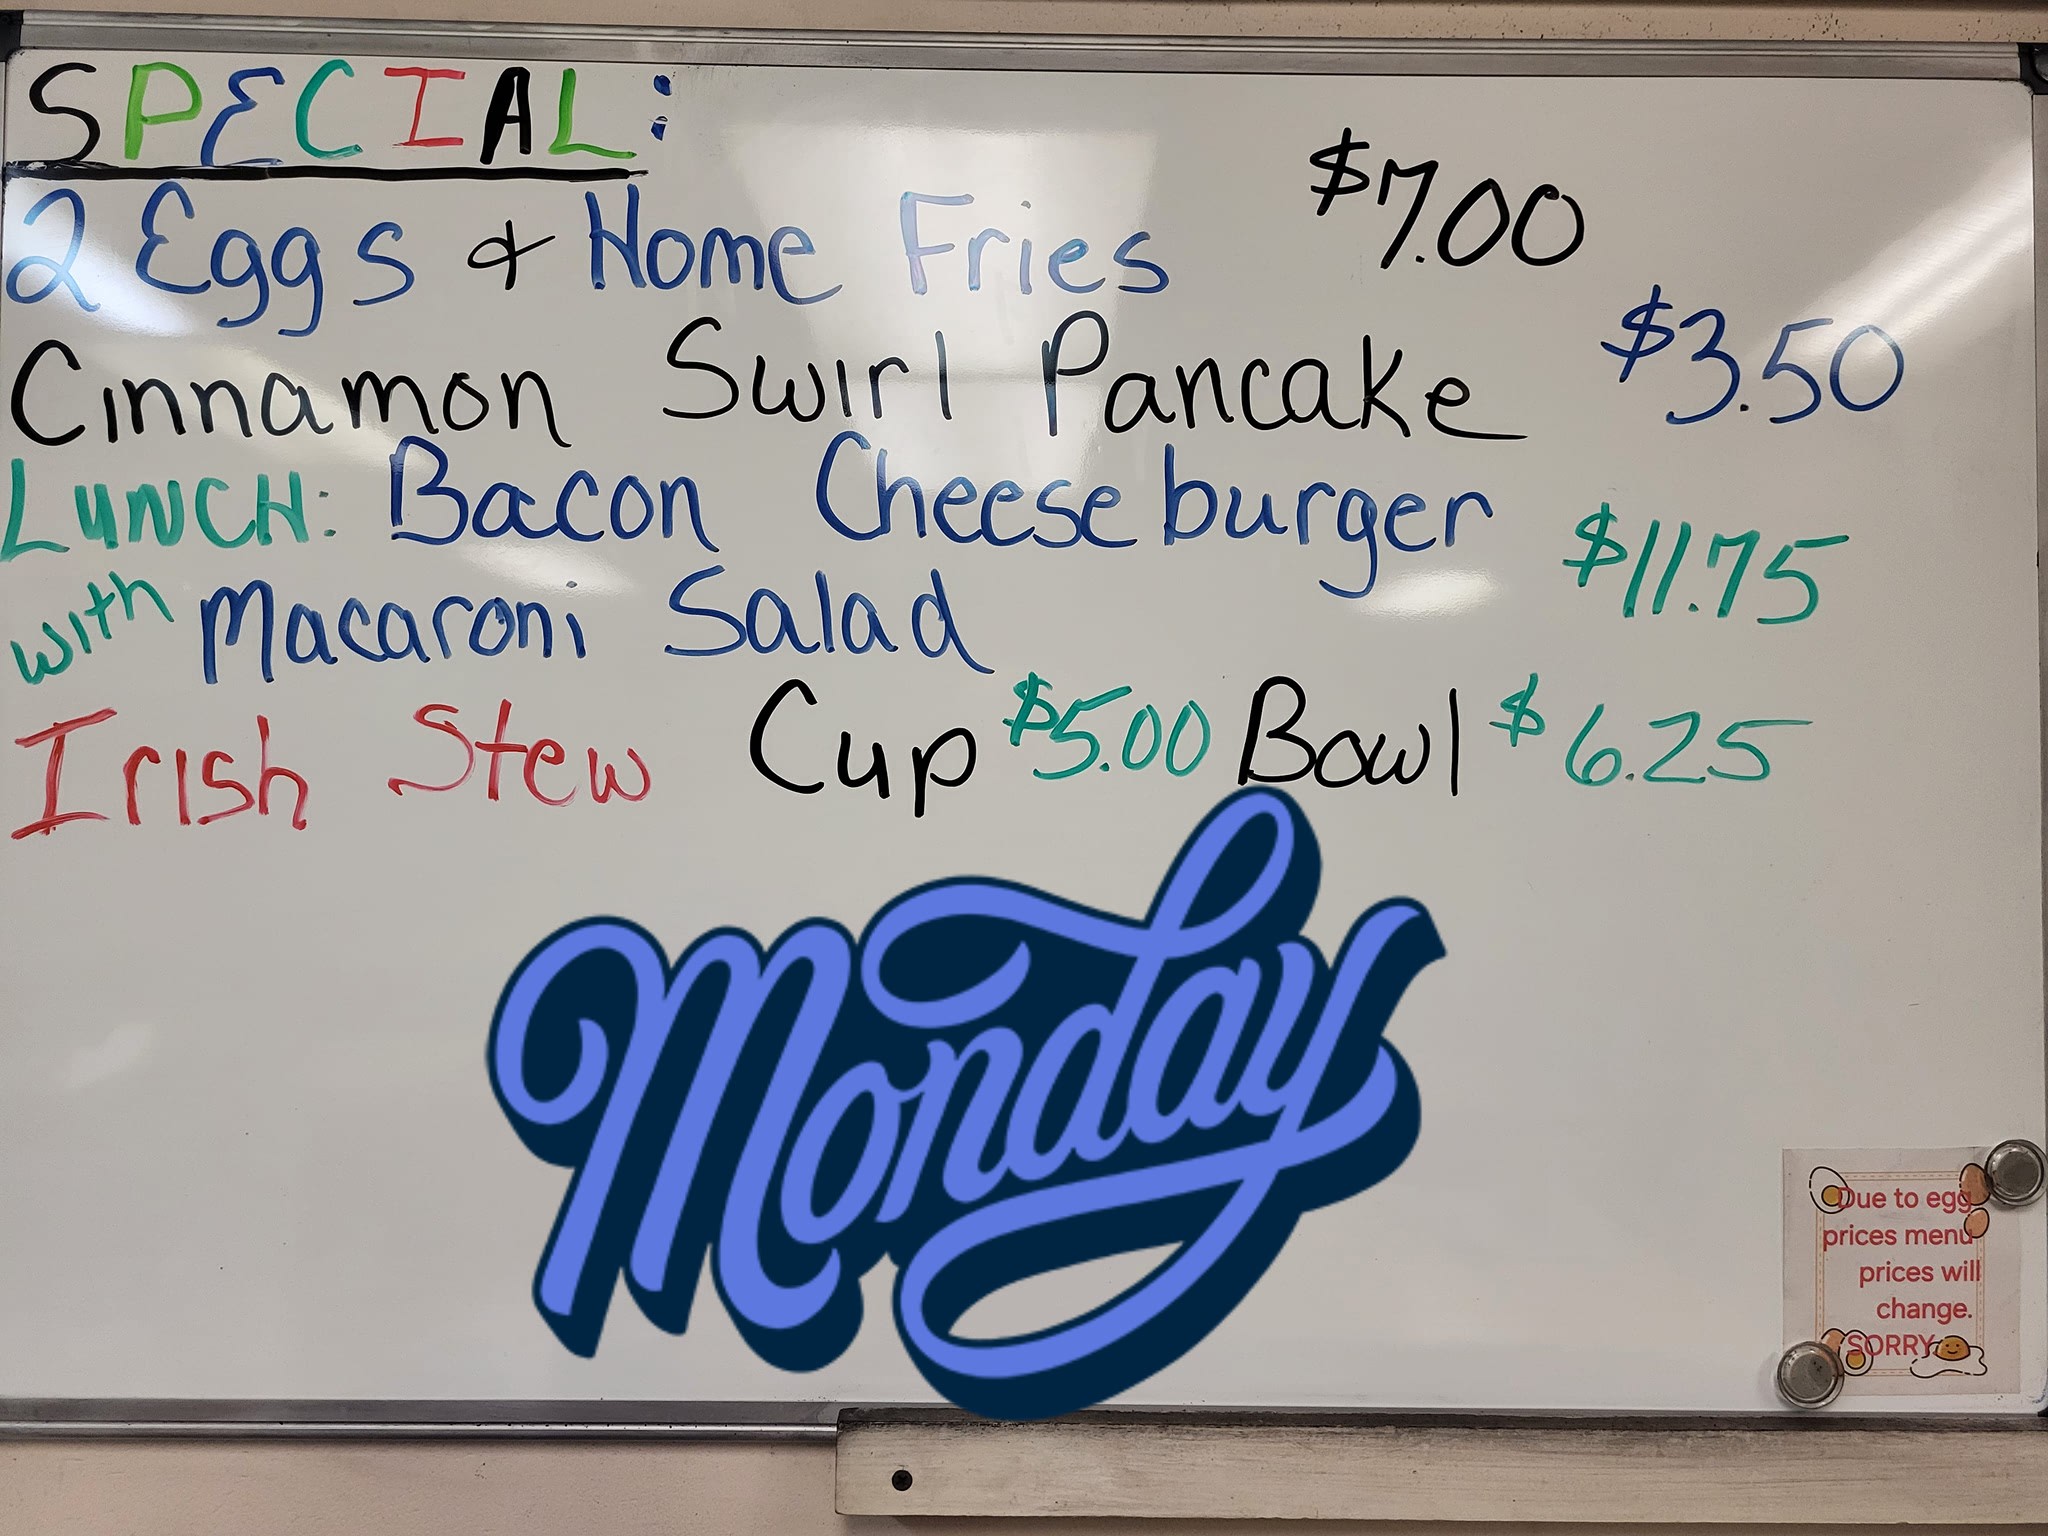 SPECIAL:
2 Eggs & Home Fries $7.00
Cinnamon Swirl Pancake $3.50
LUNCH: Bacon Cheeseburger
with Macaroni Salad $11.75
Irish Stew Cup $5.00 Bowl $6.25
Monday
Due to egg
prices menu
prices will
change.
SORRY